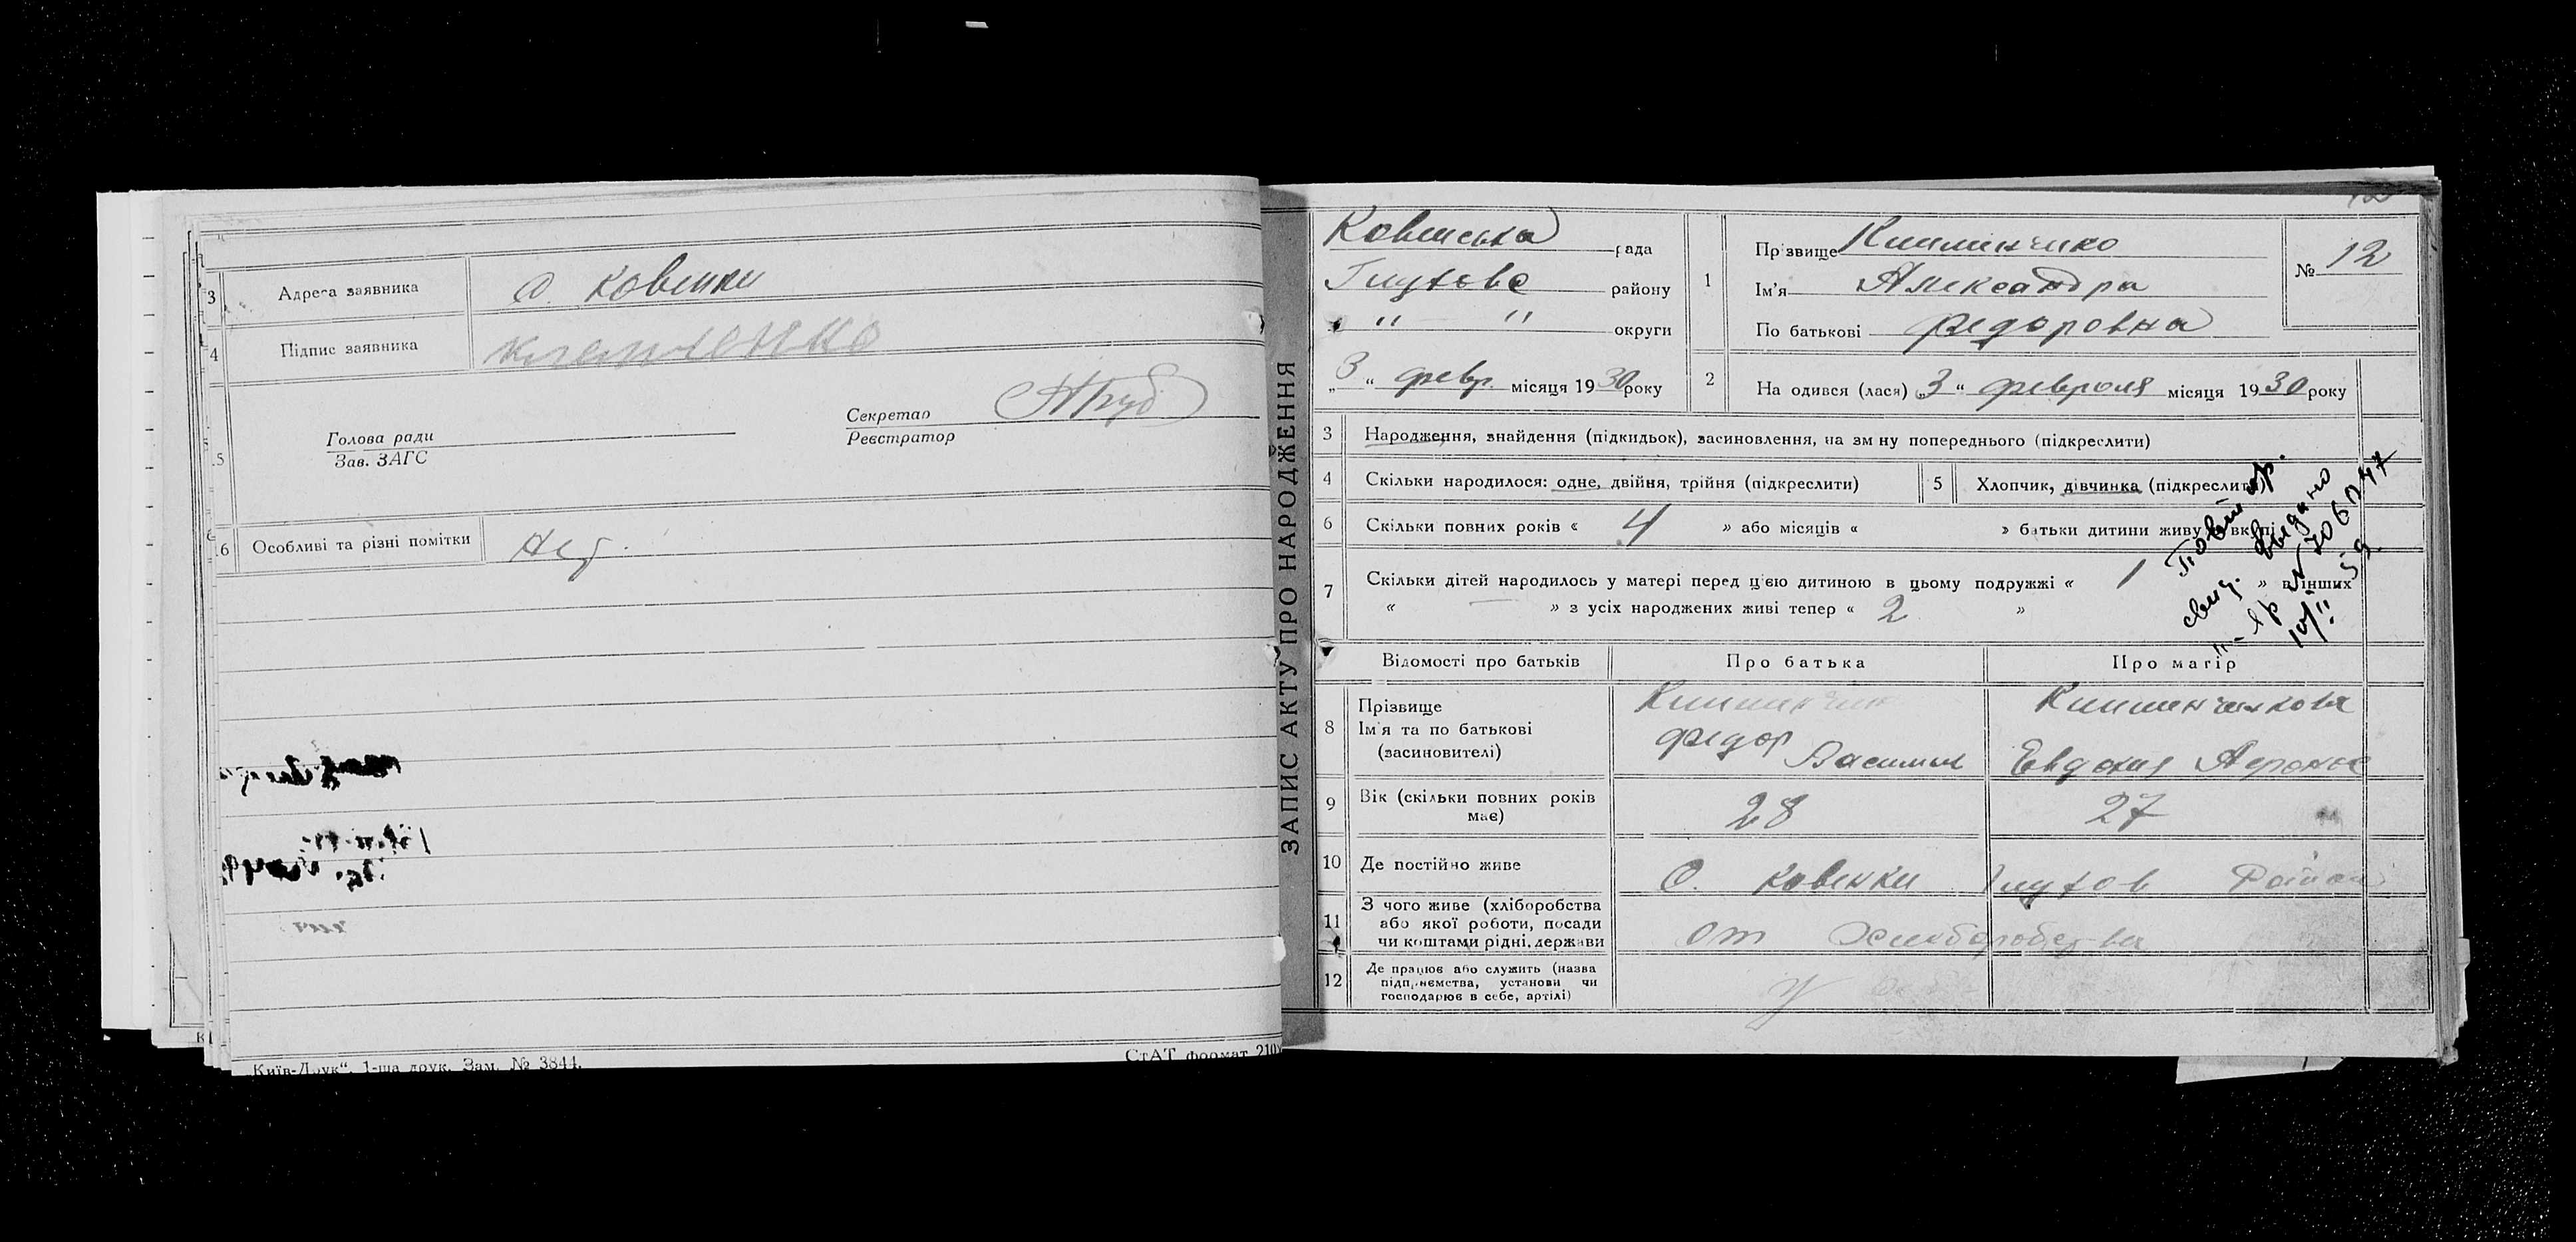 3 Адреса заявника с. Ковенки
4 Підпис заявника Клеменченко
5 Голова ради
Зав. ЗАГС
Секретар
Реєстратор
16 Особливі та різні помітки Нет.
Київ-Друк“. 1-ша друк. Зам. № 3844.
СтАТ формат 210
ЗАПИС АКТУ ПРО НАРОДЖЕННЯ
Ковенська рада
Глухове району
" " округи
„3“ февр. місяця 1930 року
1 Прізвище Климинчико
Ім'я Александра
По батькові Федоровна
№ 12
2 На одився (лася) „3“ февроля місяця 1930 року
3 Народження, знайдення (підкидьок), засиновлення, на зм ну попереднього (підкреслити)
4 Скільки народилося: одне, двійня, трійня (підкреслити)
5 Хлопчик, дівчинка (підкреслити)
6 Скільки повних років « 4 » або місяців « » батьки дитини живу вкупі
7 Скільки дітей народилось у матері перед цією дитиною в цьому подружжі « 1 » в інших
« — » з усіх народжених живі тепер « 2 »
Повтор.
свид. выдано
10/II 59
Відомості про батьків Про батька Про матір
8 Прізвище
Ім'я та по батькові
(засновителі)
Климинчик
Федор Василь
Климинчикова
Евдокия
9 Вік (скільки повних років має) 28 27
10 Де постійно живе С. Ковенки Глухов Район
11 З чого живе (хліборобства
або якої роботи, посади
чи коштами рідні, держави
от Хлиборобства
12 Де працює або служить (назва
підприємства, установи чи
господарює в себе, артілі)
у